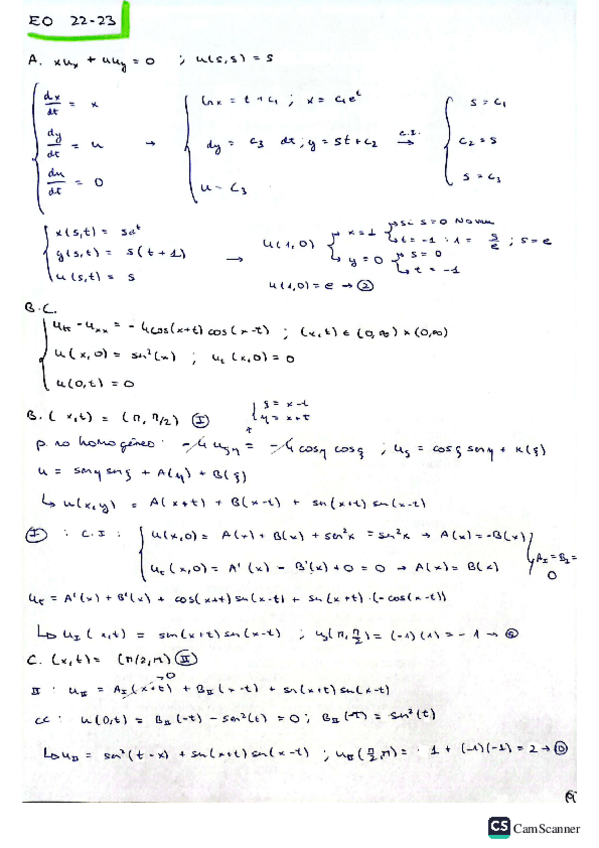 EO 22-23
A. xux + uuy = 0 ; u(s,s) = s
dx/dt = x
dy/dt = u
du/dt = 0
→
ln x = t + c1 ; x = c1e^t
dy = c3 dt ; y = st + c2
u = c3
c.I. →
s = c1
c2 = s
s = c3
x(s,t) = se^t
y(s,t) = s(t+1)
u(s,t) = s
→ u(1,0)
x=1 si s=0 No
t=-1 : 1 = s/e ; s=e
y=0 s=0
t=-1
u(1,0) = e → ②
B.C.
utt - uxx = -4cos(x+t)cos(x-t) ; (x,t) ∈ (0,∞)×(0,∞)
u(x,0) = sin²(x) ; ut(x,0) = 0
u(0,t) = 0
B. (x,t) = (π, π/2) Ⓘ
ξ = x-t
η = x+t
p. no homogéneo: -4uξη = -4cosη cosξ ; uξ = cosξ senη + K(ξ)
u = senη senξ + A(η) + B(ξ)
↳ u(x,y) = A(x+t) + B(x-t) + sen(x+t) sen(x-t)
Ⓘ : C.I :
u(x,0) = A(x) + B(x) + sen²x = sen²x → A(x) = -B(x)
ut(x,0) = A'(x) - B'(x) + 0 = 0 → A(x) = B(x)
AI = BI = 0
ut = A'(x) + B'(x) + cos(x+t) sen(x-t) + sen(x+t)·(-cos(x-t))
↳ uI(x,t) = sen(x+t) sen(x-t) ; uI(π, π/2) = (-1)(1) = -1 →
C. (x,t) = (π/2, π) Ⅱ
Ⅱ : uⅡ = AI(x+t) →0 + BⅡ(x-t) + sen(x+t) sen(x-t)
cc : u(0,t) = BⅡ(-t) - sen²(t) = 0 ; BⅡ(-t) = sin²(t)
↳ uⅡ = sen²(t-x) + sen(x+t) sen(x-t) ; uⅡ(π/2, π) = 1 + (-1)(-1) = 2 → Ⓓ
CS CamScanner